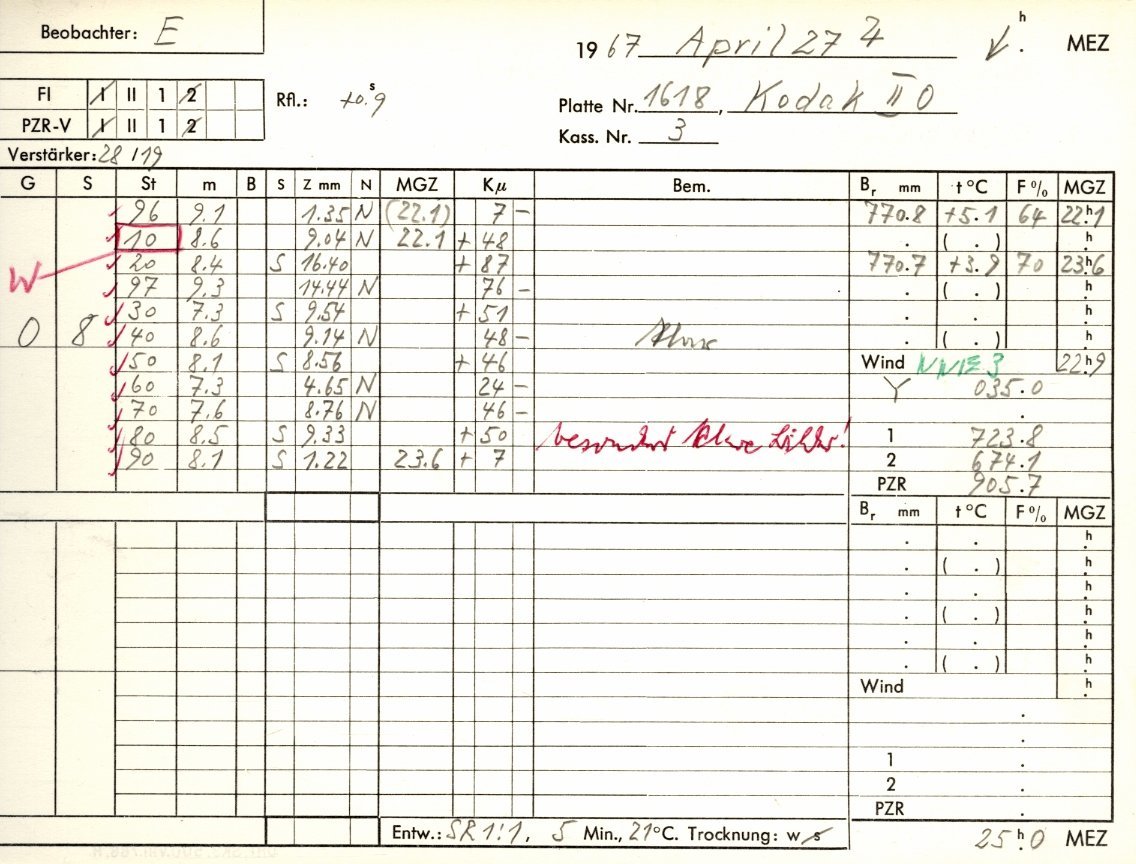 Beobachter: E
1967 April 27 h MEZ
FI I II 1 2 Rfl.: +0.s9
PZR-V I II 1 2
Platte Nr. 1618, Kodak II O
Kass. Nr. 3
Verstärker: 28/19
G S St m B S Z mm N MGZ Kμ Bem. Br mm t °C F% MGZ
96 9.1 1.35 N (22.1) 7 – 770.8 +5.1 64 22h1
10 8.6 9.04 N 22.1 + 48 . ( . ) h.
20 8.4 S 16.40 + 87 770.7 +3.9 70 23h6
W 97 9.3 14.44 N 76 – . ( . ) h.
30 7.3 S 9.54 + 51 . . h.
0 8 40 8.6 9.14 N 48 – . ( . ) h.
50 8.1 S 8.56 + 46 Wind NNE 3 22h9
60 7.3 4.65 N 24 – Y 035.0
70 7.6 8.76 N 46 – .
80 8.5 S 9.33 + 50 1 723.8
90 8.1 S 1.22 23.6 + 7 2 674.1
PZR 905.7
Br mm t °C F% MGZ
. . h.
. ( . ) h.
. . h.
. ( . ) h.
. . h.
. ( . ) h.
Wind h.
.
.
1 .
2 .
PZR .
Entw.: SR 1:1, 5 Min., 21°C. Trocknung: w s
25h.0 MEZ